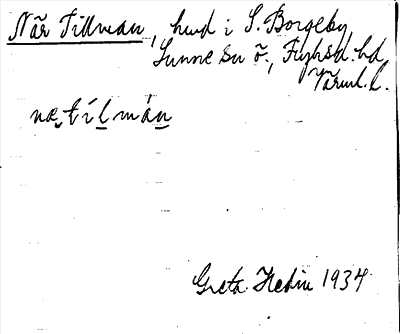 När Tillman, hmd i S. Borgeby
Sunne sn ö., Fryksd. hd
Värml. l.
næ̣tíl̲mán̲
Greta Hedin 1934